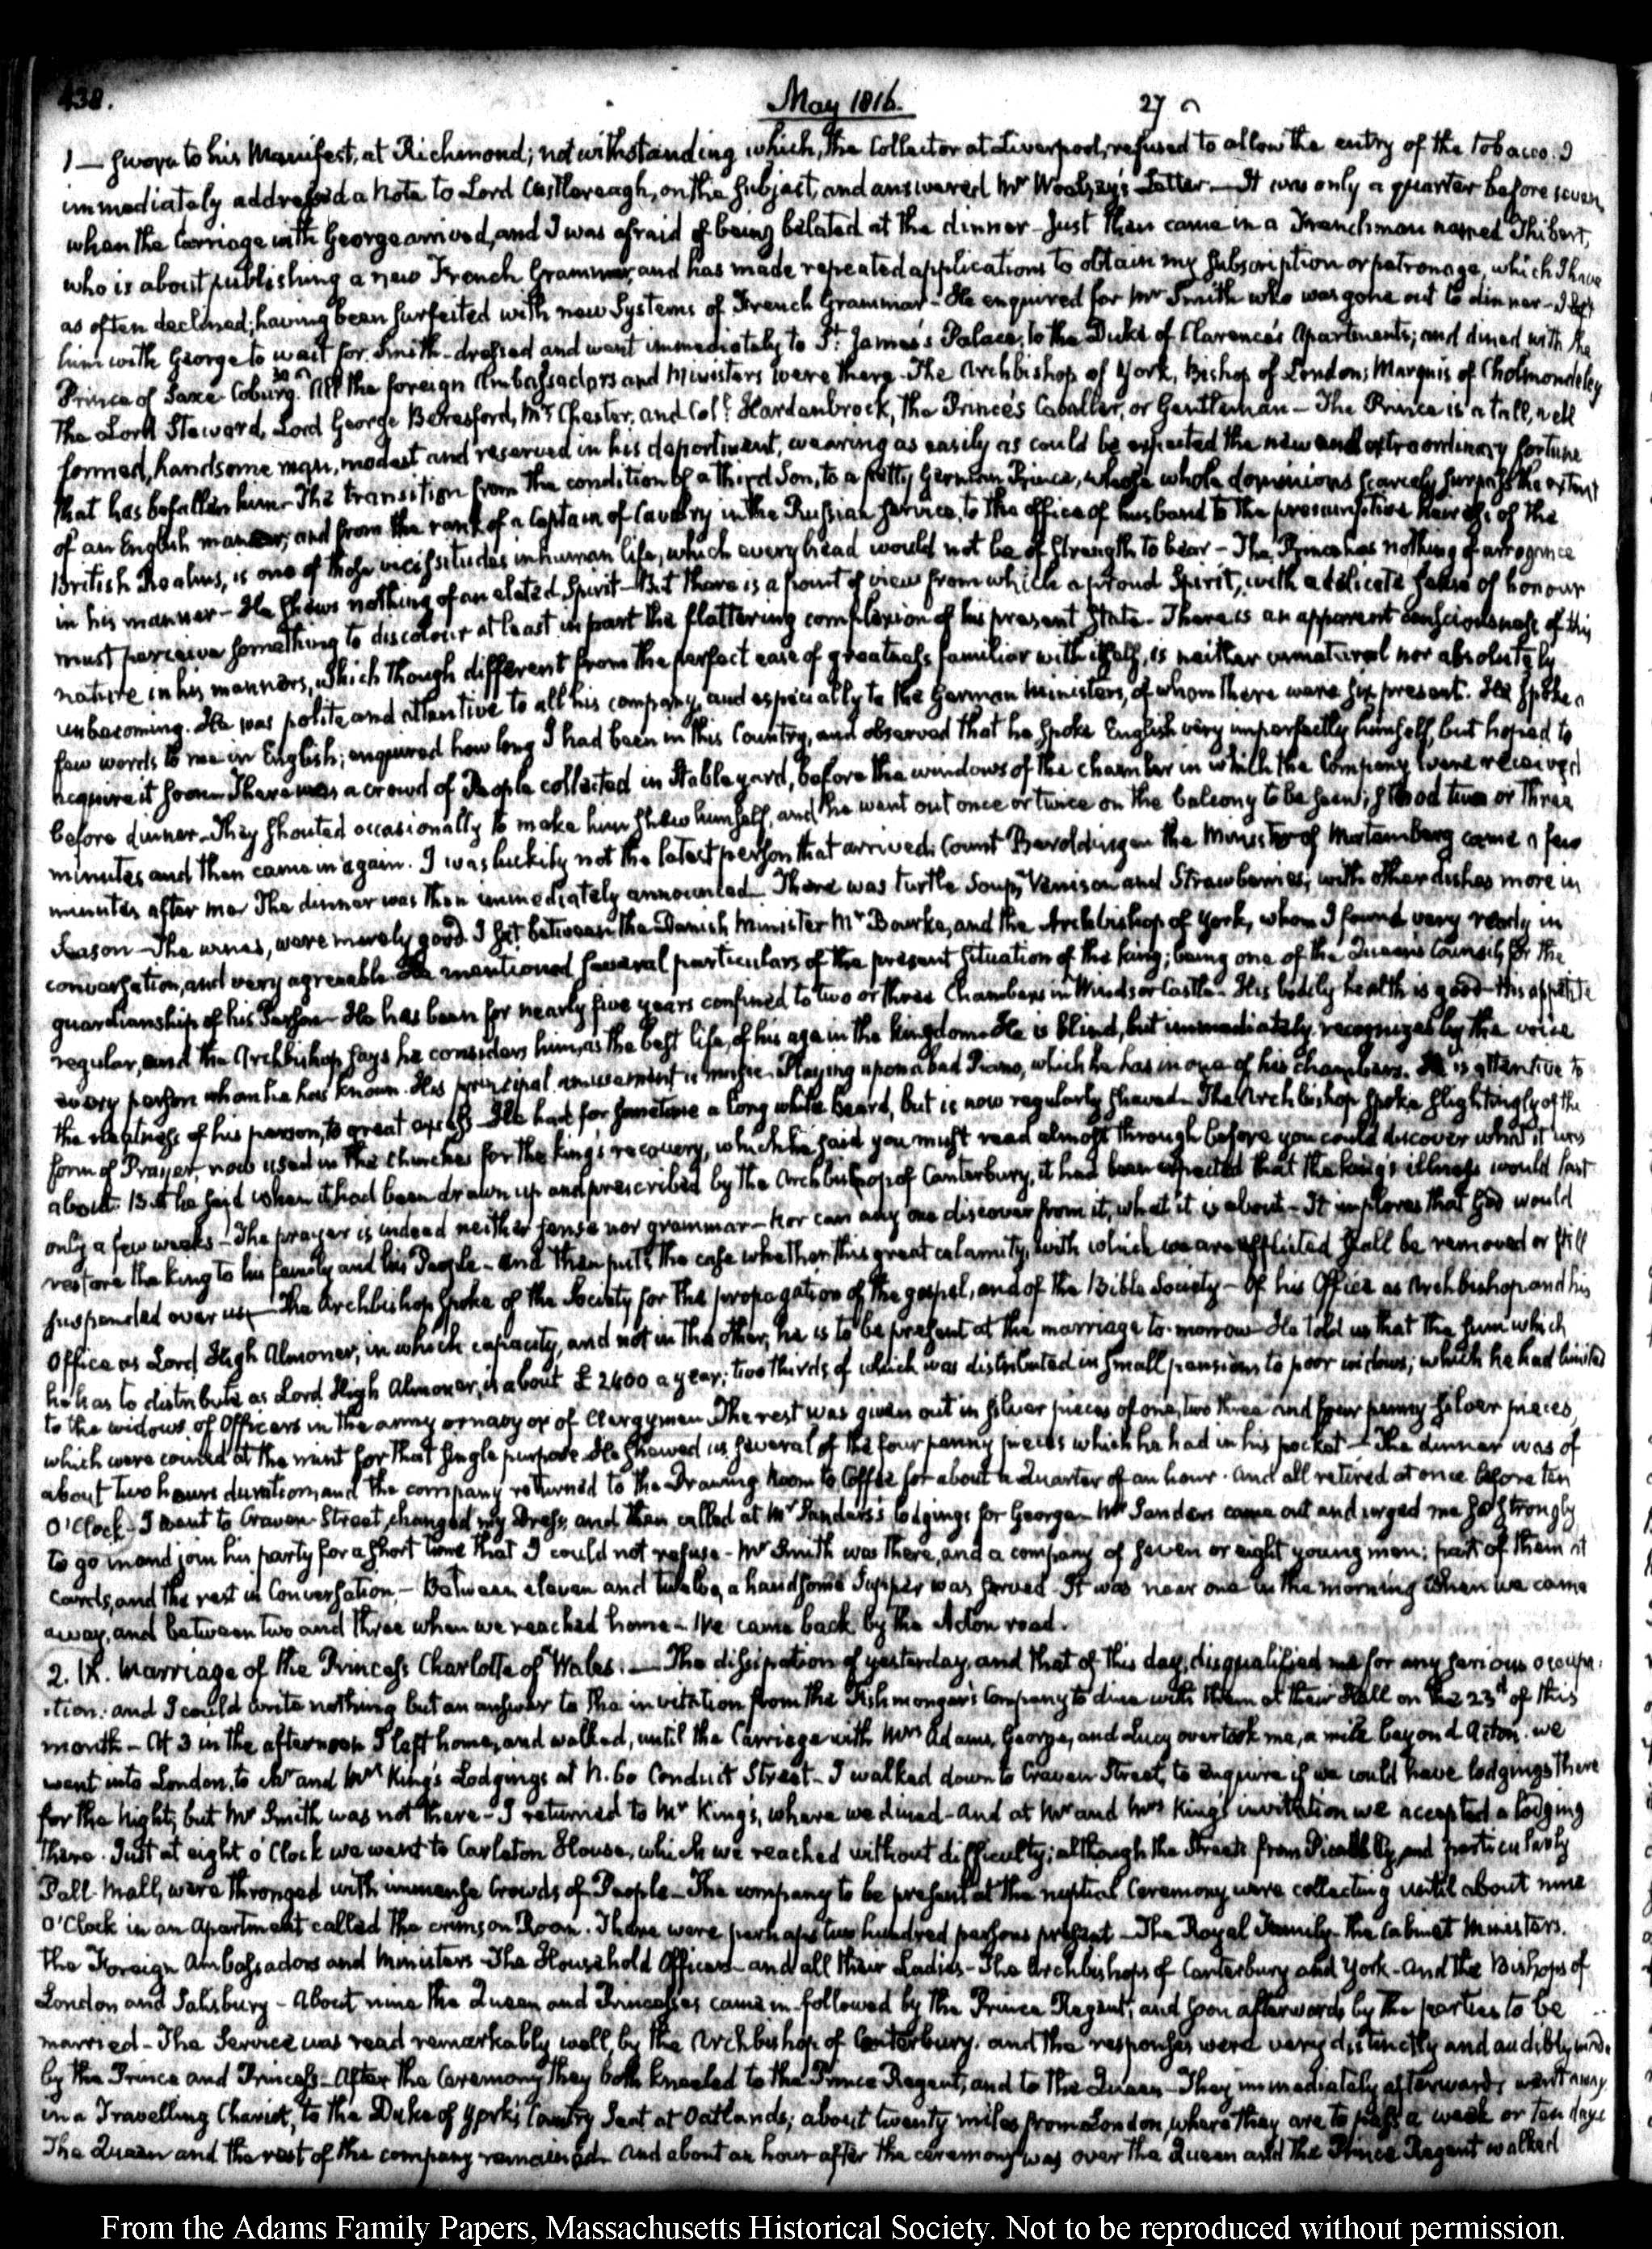 438.
May 1816.
27
1 — sworn to his Manifest, at Richmond; notwithstanding which, the Collector at Liverpool, refused to allow the entry of the tobacco. I
immediately addressed a Note to Lord Castlereagh, on the subject, and answered Mr Woolsey's Letter. — It was only a quarter before seven,
when the Carriage with George arrived, and I was afraid of being belated at the dinner — Just then came in a Frenchman named Thibert,
who is about publishing a new French Grammar, and has made repeated applications to obtain my subscription or patronage, which I have
as often declined; having been surfeited with new Systems of French Grammar — He enquired for Mr Smith who was gone out to dinner — I left
him with George to wait for Smith — dressed and went immediately to St. James's Palace, to the Duke of Clarence's Apartments; and dined with the
Prince of Saxe-Coburg. All the foreign Ambassadors and Ministers were there — The Archbishop of York, Bishop of London; Marquis of Cholmondeley
The Lord Steward, Lord George Beresford, Mr Chester, and Coll. Hardenbrock, the Prince's Caballer, or Gentleman — The Prince is a tall, well
formed, handsome man, modest and reserved in his deportment, wearing as easily as could be expected the new and extraordinary fortune
that has befallen him — The transition from the condition of a third Son, to a petty German Prince, whose whole dominions scarcely surpass the extent
of an English manor; and from the rank of a Captain of Cavalry in the Russian service, to the office of husband to the presumptive heiress of the
British Realms, is one of those vicissitudes in human life, which every head would not be of strength to bear — The Prince has nothing of arrogance
in his manner — He shews nothing of an elated Spirit — But there is a point of view from which a proud Spirit, with a delicate sense of honour
must perceive something to discolour at least in part the flattering complexion of his present State — There is an apparent consciousness of this
nature in his manners, which though different from the perfect ease of greatness familiar with itself, is neither unnatural nor absolutely
unbecoming. He was polite and attentive to all his company, and especially to the German Ministers, of whom there were six present. He spoke a
few words to me in English; enquired how long I had been in this Country, and observed that he spoke English very imperfectly himself, but hoped to
acquire it soon — There was a crowd of People collected in Stableyard, before the windows of the chamber in which the Company were received
before dinner — They shouted occasionally to make him shew himself, and he went out once or twice on the balcony to be seen; stood two or three
minutes and then came in again. I was luckily not the latest person that arrived. Count Beroldingen the Minister of Wurtemberg came a few
minutes after me. The dinner was then immediately announced — There was turtle Soup, Venison and Strawberries; with other dishes more in
Season — The wines, were merely good. I sat between the Danish Minister Mr Bourke, and the Archbishop of York, whom I found very ready in
conversation, and very agreeable — He mentioned several particulars of the present situation of the king; being one of the Queen's Council for the
guardianship of his Person — He has been for nearly five years confined to two or three Chambers in Windsor Castle — His bodily health is good — His appetite
regular, and the Archbishop says he considers him, as the best life, of his age in the kingdom. He is blind, but immediately recognizes by the voice
every person whom he has known. His principal amusement is music — Playing upon a bad Piano, which he has in one of his chambers. He is attentive to
the neatness of his person, to great excess — He had for sometime a long white beard, but is now regularly shaved — The Archbishop spoke slightingly of the
form of Prayer, now used in the churches for the king's recovery, which he said you must read almost through before you could discover what it was
about. But he said when it had been drawn up and prescribed by the Archbishop of Canterbury, it had been expected that the king's illness would last
only a few weeks — The prayer is indeed neither sense nor grammar — Nor can any one discover from it, what it is about — It implores that God would
restore the king to his family and his People — and then puts the case whether this great calamity, with which we are afflicted shall be removed or still
suspended over us — The Archbishop spoke of the Society for the propagation of the gospel, and of the Bible Society — Of his Office as Archbishop and his
Office as Lord High Almoner, in which capacity, and not in the other, he is to be present at the marriage to-morrow — He told us that the sum which
he has to distribute as Lord High Almoner, is about £2400 a year; two thirds of which was distributed in small pensions to poor widows; which he had limited
to the widows of Officers in the army or navy or of Clergymen. The rest was given out in silver pieces of one, two three and four penny silver pieces,
which were coined at the mint for that single purpose. He shewed us several of the four penny pieces which he had in his pocket — The dinner was of
about two hours duration, and the company returned to the Drawing Room to Coffee for about a Quarter of an hour. and all retired at once before ten
O'Clock — I went to Craven Street, changed my Dress, and then called at Mr Sanders's lodgings for George — Mr Sanders came out and urged me so strongly
to go in and join his party for a short time that I could not refuse — Mr Smith was there, and a company of seven or eight young men; part of them at
cards, and the rest in Conversation — Between eleven and twelve, a handsome Supper was served. It was near one in the morning when we came
away, and between two and three when we reached home — We came back by the Acton road.
2. IX. Marriage of the Princess Charlotte of Wales. — The dissipation of yesterday, and that of this day, disqualified me for any serious occupa-
tion. and I could write nothing but an answer to the invitation from the Fishmonger's Company to dine with them at their Hall on the 23d of this
month — At 3 in the afternoon I left home, and walked, until the Carriage with Mrs Adams, George, and Lucy overtook me, a mile beyond Acton. we
went into London, to Mr and Mrs King's Lodgings at N. 60 Conduit Street — I walked down to Craven Street, to enquire if we could have lodgings there
for the Night; but Mr Smith was not there — I returned to Mr King's, where we dined — and at Mr and Mrs King's invitation we accepted a lodging
there. Just at eight o'Clock we went to Carleton House, which we reached without difficulty; although the Streets from Picadilly, and particularly
Pall-Mall, were thronged with immense Crowds of People — The company to be present at the nuptial Ceremony were collecting until about nine
O'Clock in an Apartment called the crimson Room. There were perhaps two hundred persons present — The Royal Family — The Cabinet Ministers.
the Foreign Ambassadors and Ministers — The Household Officers — and all their Ladies — The Archbishops of Canterbury and York — And the Bishops of
London and Salisbury — About nine the Queen and Princesses came in — followed by the Prince Regent, and soon afterwards by the parties to be
married — The Service was read remarkably well, by the Archbishop of Canterbury. and the responses were very distinctly and audibly made
by the Prince and Princess — After the Ceremony they both kneeled to the Prince Regent, and to the Queen — They immediately afterwards went away
in a Travelling Chariot, to the Duke of York's Country Seat at Oatlands; about twenty miles from London, where they are to pass a week or ten days
The Queen and the rest of the company remained. and about an hour after the ceremony was over the Queen and the Prince Regent walked
From the Adams Family Papers, Massachusetts Historical Society. Not to be reproduced without permission.